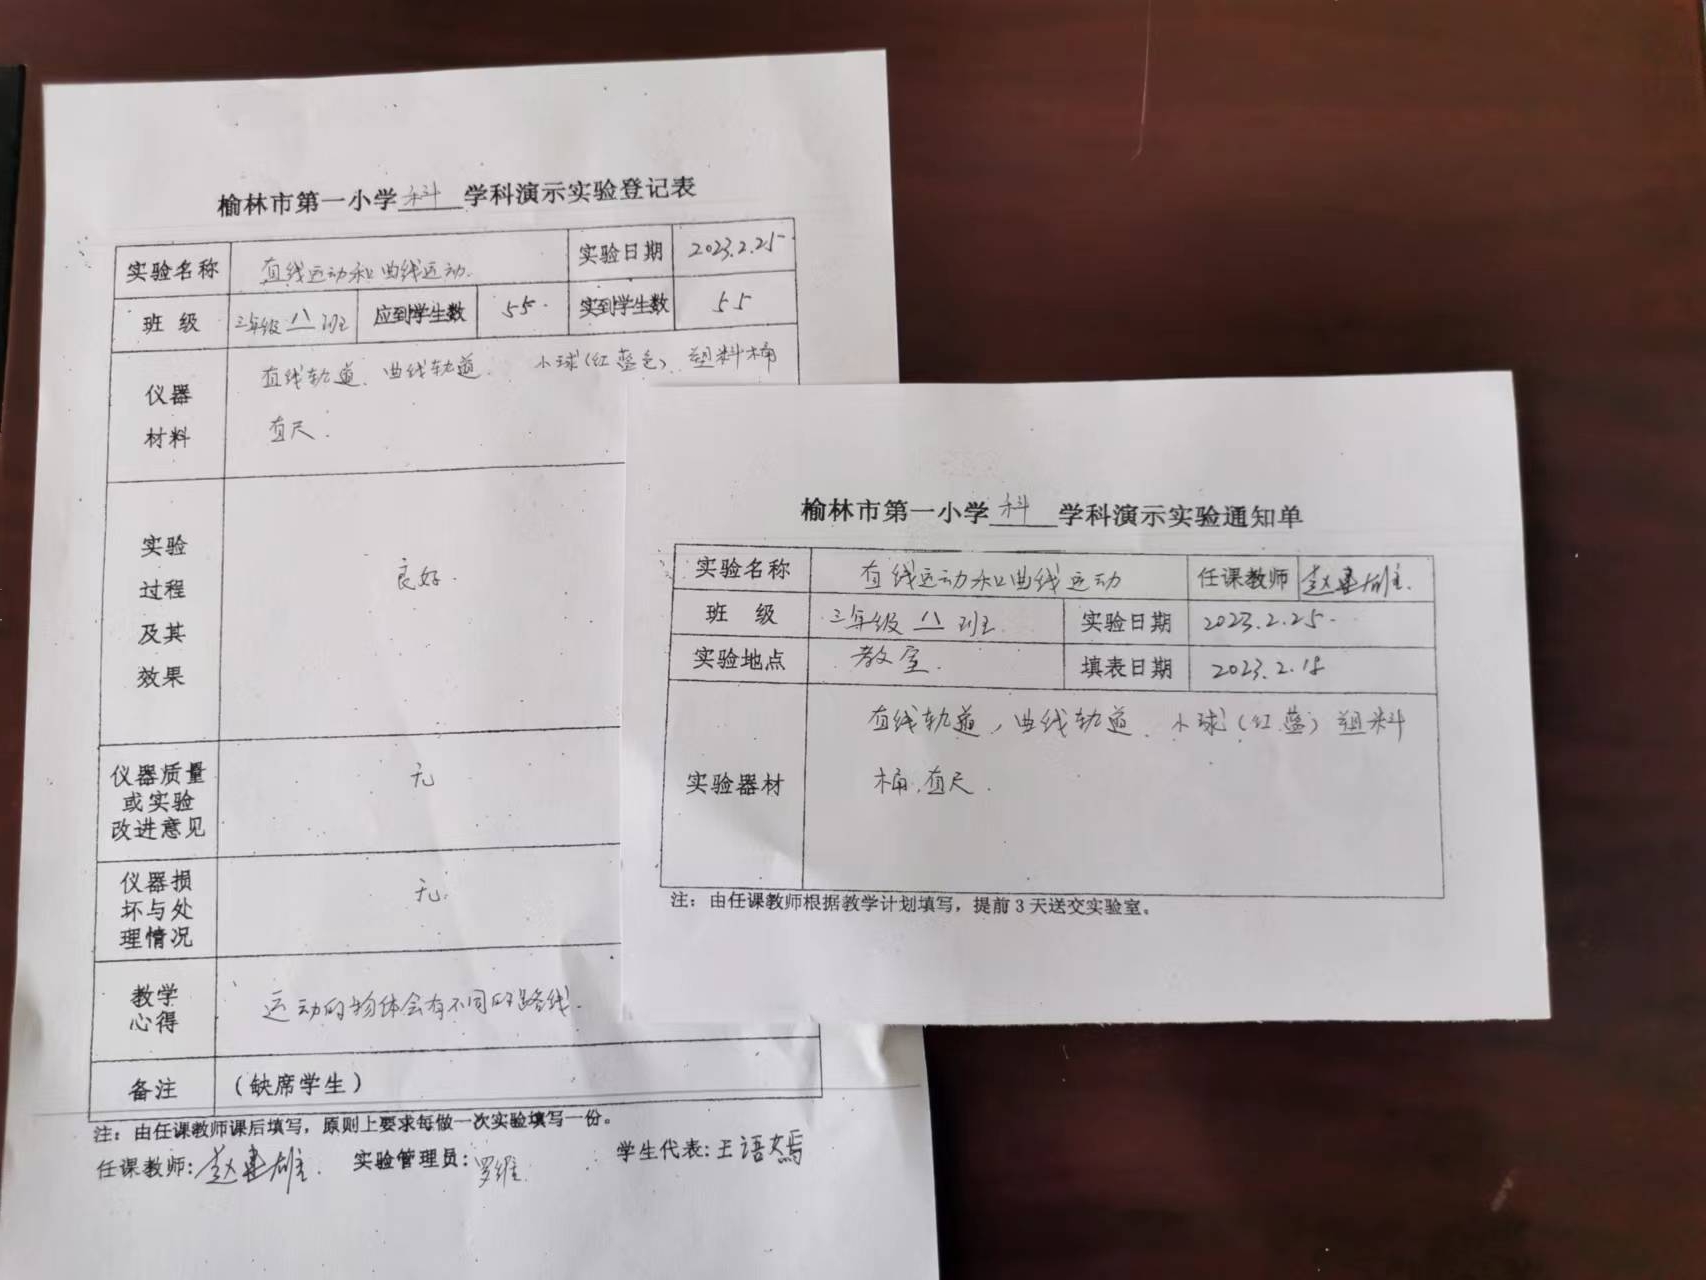 榆林市第一小学科学科演示实验登记表
实验名称 直线运动和曲线运动. 实验日期 2023.2.25
班 级 三年级八班 应到学生数 55. 实到学生数 55
仪器
材料
直线轨道、曲线轨道. 小球(红蓝色)、塑料桶
直尺.
实验
过程
及其
效果
良好.
仪器质量
或实验
改进意见
无
仪器损
坏与处
理情况
无.
教学
心得
运动的物体会有不同的路线.
备注 (缺席学生)
注：由任课教师课后填写，原则上要求每做一次实验填写一份。
任课教师:赵建雄. 实验管理员:罗维. 学生代表:王语嫣
榆林市第一小学科学科演示实验通知单
实验名称 直线运动和曲线运动 任课教师 赵建雄.
班 级 三年级八班 实验日期 2023.2.25.
实验地点 教室. 填表日期 2023.2.18
实验器材
直线轨道，曲线轨道、小球(红蓝)塑料
桶.直尺.
注：由任课教师根据教学计划填写，提前3天送交实验室。